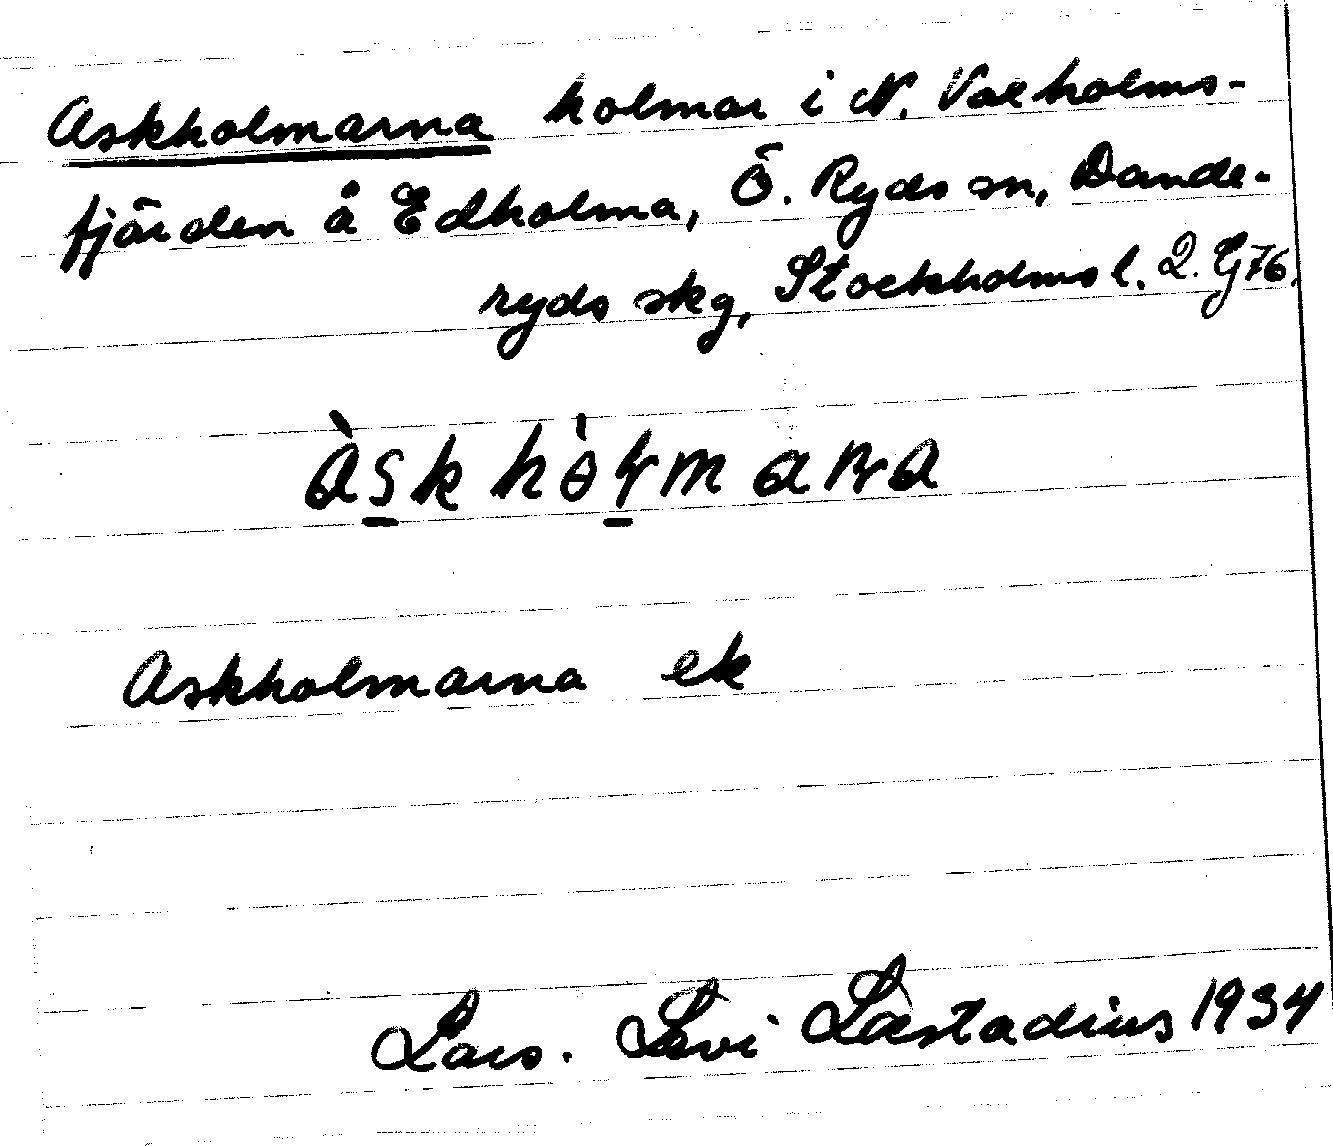 Askholmarna holmar i N. Vaxholms-
fjärden å Edholma, Ö. Ryds sn, Dande-
ryds skg, Stockholms l. 2. G76.
àskhòlmaɴa
Askholmarna ek
Lars. Levi Læstadius 1934